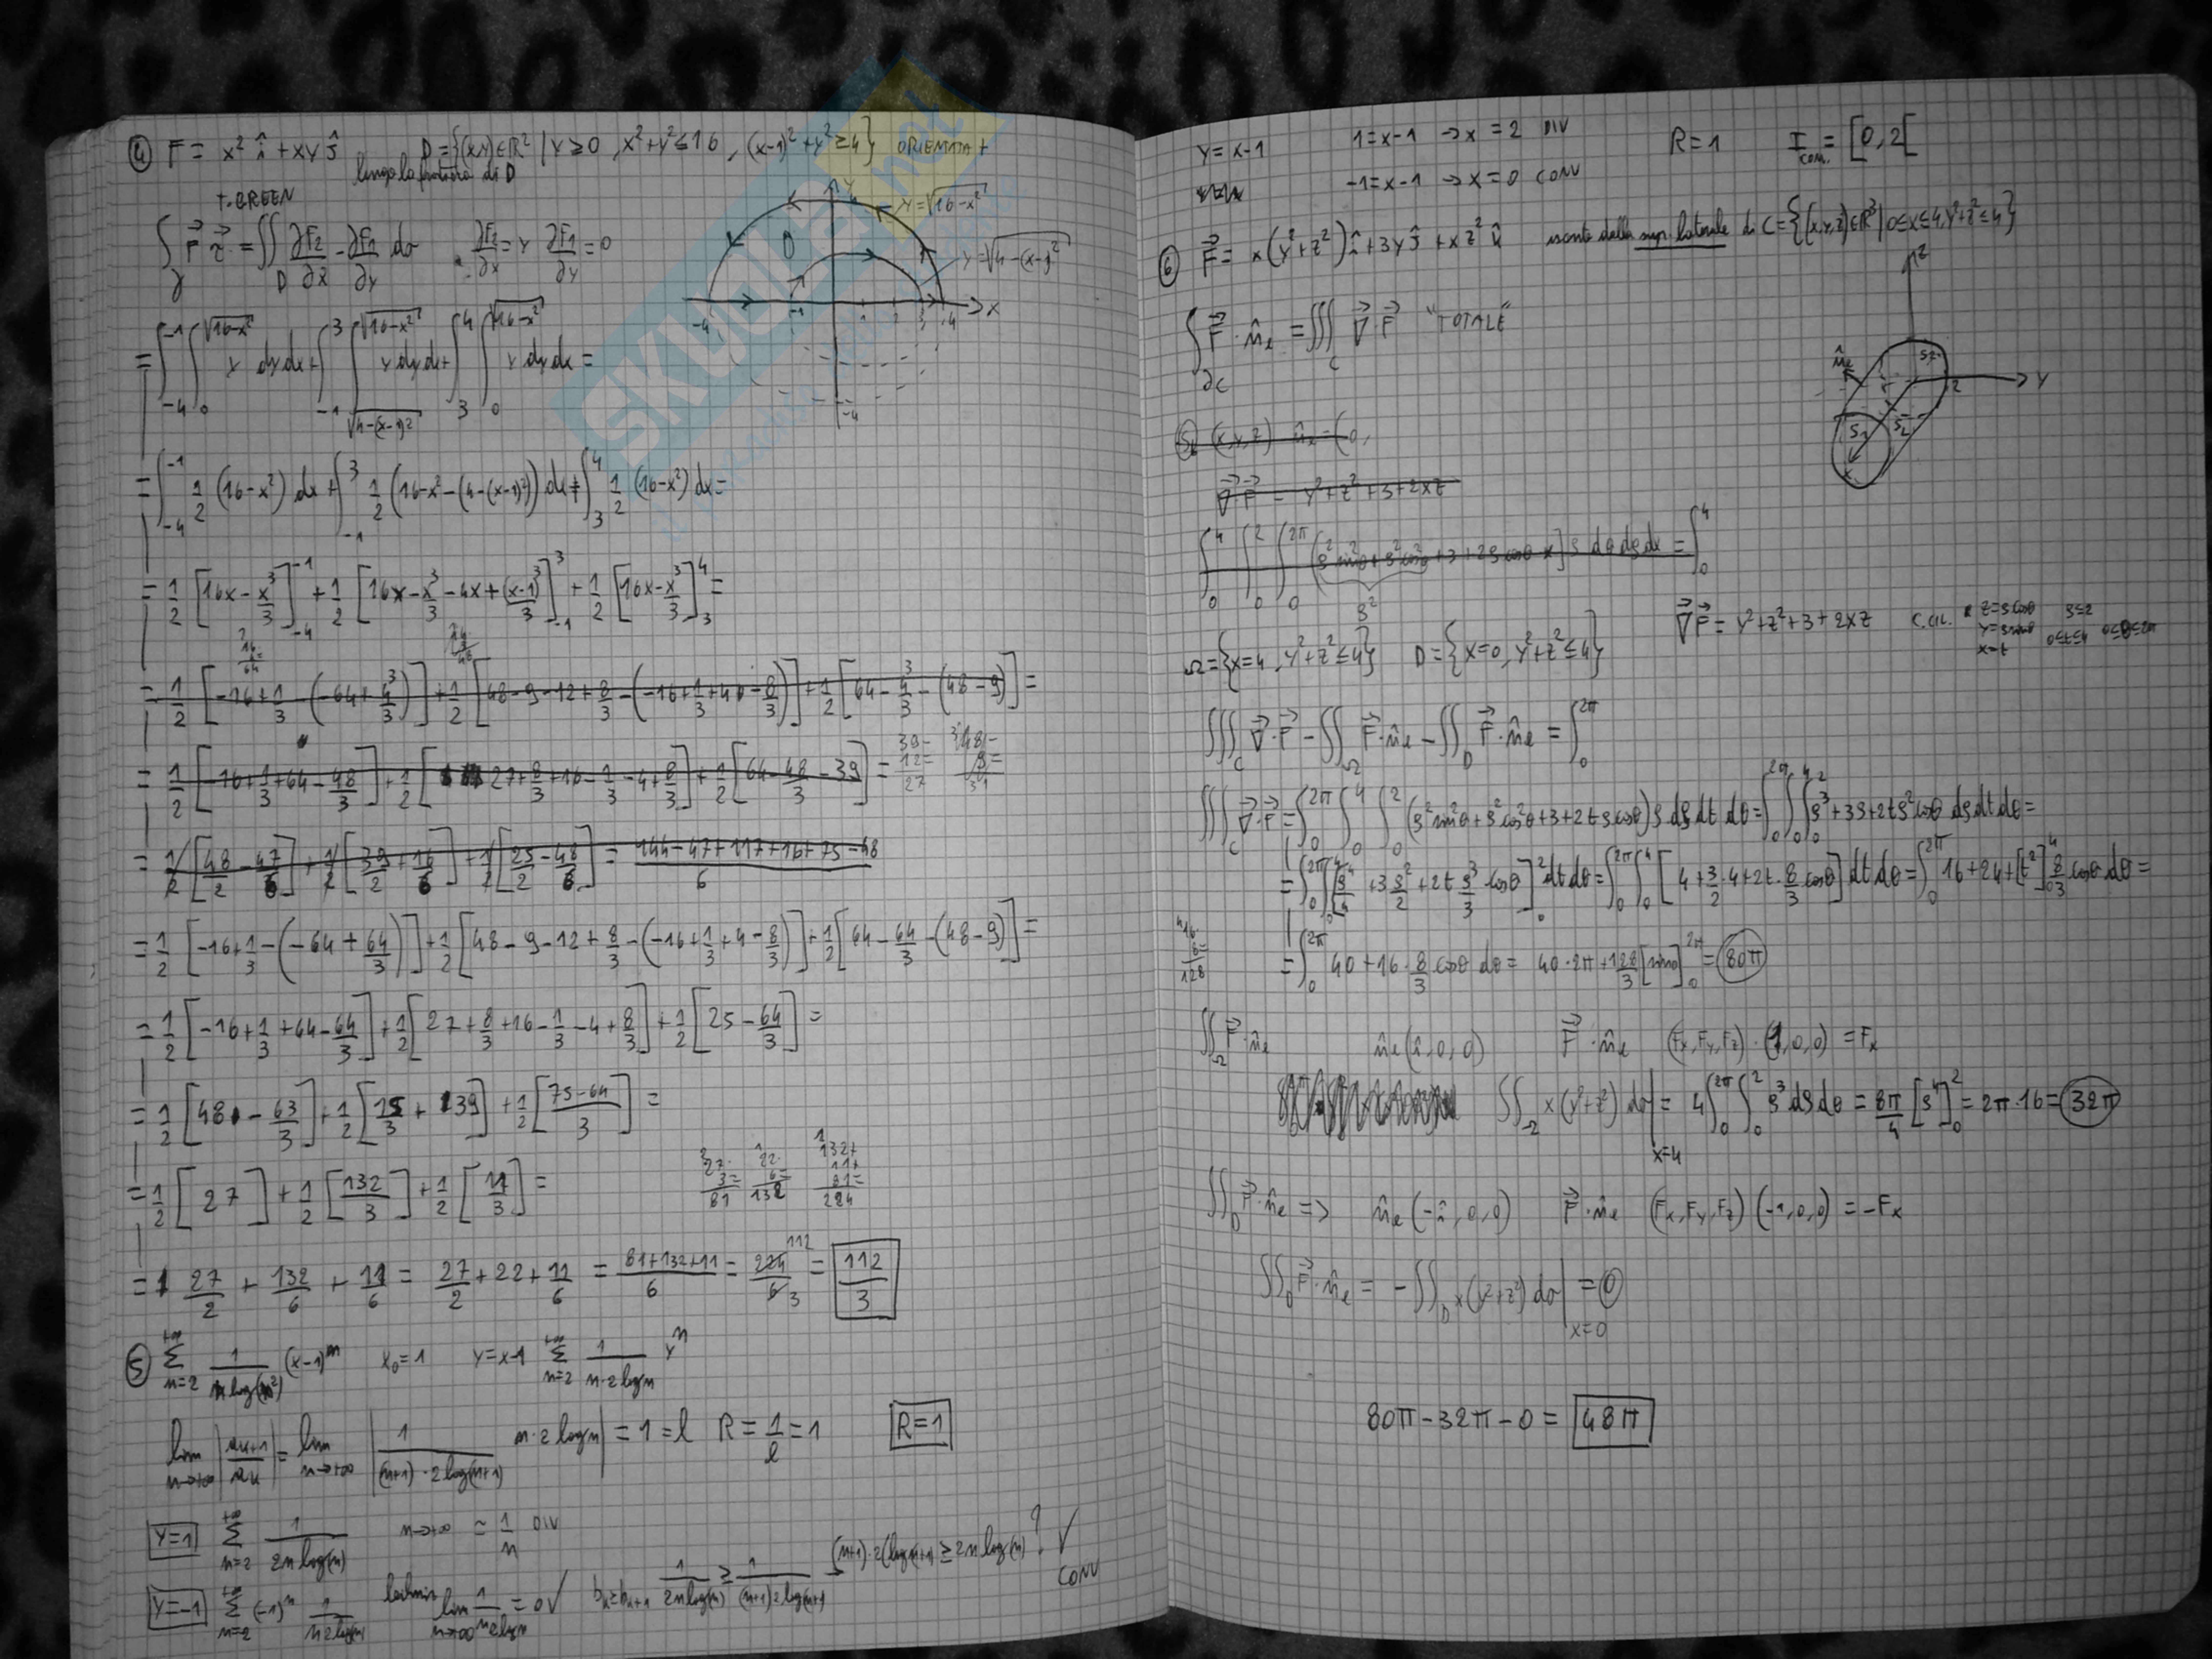 ④ F = x² î + xy ĵ   D = {(x,y) ∈ ℝ² | y ≥ 0, x²+y² ≤ 16, (x-1)²+y² ≥ 4} ORIENTATA +
lungo la frontiera di D
T. GREEN
∫_γ F⃗ τ⃗ = ∬_D ∂F₂/∂x - ∂F₁/∂y dσ   ∂F₂/∂x = y   ∂F₁/∂y = 0
y = √(16-x²)
y = √(4-(x-1)²)
D
-4 -1 1 2 3 4 x
-4
= ∫_{-4}^{-1} ∫_0^{√(16-x²)} y dy dx + ∫_{-1}^{3} ∫_{√(4-(x-1)²)}^{√(16-x²)} y dy dx + ∫_3^4 ∫_0^{√(16-x²)} y dy dx =
= ∫_{-4}^{-1} 1/2 (16-x²) dx + ∫_{-1}^{3} 1/2 (16-x²-(4-(x-1)²)) dx + ∫_3^4 1/2 (16-x²) dx =
= 1/2 [16x - x³/3]_{-4}^{-1} + 1/2 [16x - x³/3 - 4x + (x-1)³/3]_{-1}^{3} + 1/2 [16x - x³/3]_3^4 =
= 1/2 [-16 + 1/3 - (-64 + 4³/3)] + 1/2 [48 - 9 - 12 + 8/3 - (-16 + 1/3 + 4 - 8/3)] + 1/2 [64 - 4³/3 - (48 - 9)] =
= 1/2 [-16 + 1/3 + 64 - 48/3] + 1/2 [27 + 8/3 + 16 - 1/3 - 4 + 8/3] + 1/2 [64 - 48/3 - 39] =
= 1/2 [48/2 - 47/6] + 1/2 [39/2 + 16/6] + 1/2 [25/2 - 48/6] = (144 - 47 + 117 + 16 + 75 - 48)/6
= 1/2 [-16 + 1/3 - (-64 + 64/3)] + 1/2 [48 - 9 - 12 + 8/3 - (-16 + 1/3 + 4 - 8/3)] + 1/2 [64 - 64/3 - (48 - 9)] =
= 1/2 [-16 + 1/3 + 64 - 64/3] + 1/2 [27 + 8/3 + 16 - 1/3 - 4 + 8/3] + 1/2 [25 - 64/3] =
= 1/2 [48 - 63/3] + 1/2 [15/3 + 39] + 1/2 [(75-64)/3] =
= 1/2 [27] + 1/2 [132/3] + 1/2 [11/3] =
= 27/2 + 132/6 + 11/6 = 27/2 + 22 + 11/6 = (81+132+11)/6 = 224/6 = 112/3
⑤ Σ_{n=2}^{+∞} 1/(n log(n²)) (x-1)ⁿ   x₀ = 1   y = x-1   Σ_{n=2}^{+∞} 1/(n·2 log n) yⁿ
lim_{n→+∞} |a_{n+1}/a_n| = lim_{n→+∞} |1/((n+1)·2 log(n+1)) n·2 log n| = 1 = l   R = 1/l = 1   R=1
y=1   Σ_{n=2}^{+∞} 1/(2n log(n))   n→+∞ ≃ 1/n DIV
y=-1   Σ_{n=2}^{+∞} (-1)ⁿ 1/(n2 log n)   lim_{n→+∞} 1/(n2 log n) = 0 ✓   b_n ≥ b_{n+1}   1/(2n log(n)) ≥ 1/((n+1)2 log(n+1)) → (n+1)·2(log(n+1)) ≥ 2n log(n) ? ✓ CONV
y = x-1   1 = x-1 → x = 2 DIV   R = 1   I_conv. = [0,2[
-1 = x-1 → x = 0 CONV
⑥ F⃗ = x(y²+z²) î + 3y ĵ + xz² k̂   uscente dalla sup. laterale di C = {(x,y,z) ∈ ℝ³ | 0≤x≤4, y²+z² ≤ 4}
∫_{∂C} F⃗ · n̂e = ∭_C ∇⃗·F⃗   "TOTALE"
z n̂e S₂ y 2 S₁ S_L x
S_L (x,y,z)   n̂e = (0,
∇⃗·F⃗ = y²+z²+3+2xz
∫_0^4 ∫_0^2 ∫_0^{2π} (ρ² sin²θ + ρ² cos²θ + 3 + 2ρ cosθ x] ρ dθ dρ dx = ∫_0^4
ρ²
Ω = {x=4, y²+z² ≤ 4}   D = {x=0, y²+z² ≤ 4}   ∇⃗·F⃗ = y²+z²+3+2xz   C. CIL. z = ρ cosθ   ρ≤2
y = ρ sinθ   0≤t≤4   0≤θ≤2π
x = t
∭_C ∇⃗·F⃗ - ∬_Ω F⃗·n̂e - ∬_D F⃗·n̂e = ∫_0^{2π}
∭_C ∇⃗·F⃗ = ∫_0^{2π} ∫_0^4 ∫_0^2 (ρ² sin²θ + ρ² cos²θ + 3 + 2tρ cosθ) ρ dρ dt dθ = ∫_0^{2π} ∫_0^4 ∫_0^2 ρ³ + 3ρ + 2tρ² cosθ dρ dt dθ =
= ∫_0^{2π} ∫_0^4 [ρ⁴/4 + 3ρ²/2 + 2t ρ³/3 cosθ]_0^2 dt dθ = ∫_0^{2π} ∫_0^4 [4 + 3/2·4 + 2t·8/3 cosθ] dt dθ = ∫_0^{2π} 16 + 24 + [t²]_0^4 8/3 cosθ dθ =
= ∫_0^{2π} 40 + 16·8/3 cosθ dθ = 40·2π + 128/3 [sinθ]_0^{2π} = 80π
∬_Ω F⃗·n̂e   n̂e (î,0,0)   F⃗·n̂e   (Fx,Fy,Fz)·(1,0,0) = Fx
∬_Ω x(y²+z²) dσ|_{x=4} = 4 ∫_0^{2π} ∫_0^2 ρ³ dρ dθ = 8π/4 [ρ⁴]_0^2 = 2π·16 = 32π
∬_D F⃗·n̂e => n̂e (-î,0,0)   F⃗·n̂e   (Fx,Fy,Fz)(-1,0,0) = -Fx
∬_D F⃗·n̂e = -∬_D x(y²+z²) dσ|_{x=0} = 0
80π - 32π - 0 = 48π
SKUOLA.net